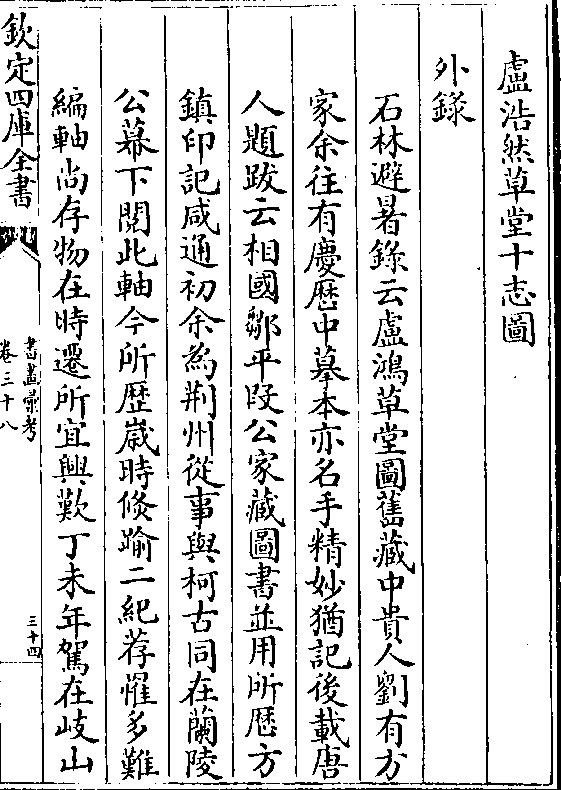 盧浩然草堂十志圖
外錄
石林避暑錄云盧鴻草堂圖舊藏中貴人劉有方
家余往有慶歴中摹本亦名手精妙猶記後載唐
人題跋云相國鄒平段公家藏圖書並用所歴方
鎮印記咸通初余為荆州從事與柯古同在蘭陵
公幕下閱此軸今所歴嵗時倐踰二紀荐懼多難
編軸尚存物在時遷所宜興歎丁未年駕在岐山
欽定四庫全書
書畫彚考
卷三十八
三十四